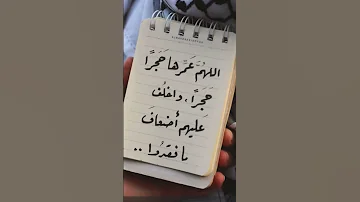 اللهُمَّ عَمِّرها حَجَرًا
حَجَرًا، واخلُف
عَليهم أضعافَ
ما فقدوا ..